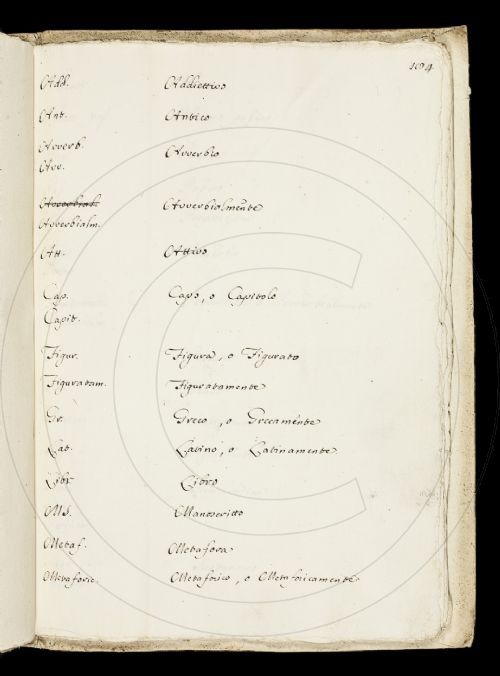 Add. Addiettivo
Ant. Antico
Avverb. Avverbio
Avv.
Avverbial. Avverbialmente
Avverbialm.
Att. Attivo
Cap. Capo, o Capitolo
Capit.
Figur. Figura, o Figurato
Figuratam. Figuratamente
Gr. Greco, o Grecamente
Lat. Latino, o Latinamente
Libr. Libro
MS. Manoscritto
Metaf. Metafora
Metaforic. Metaforico, o Metaforicamente